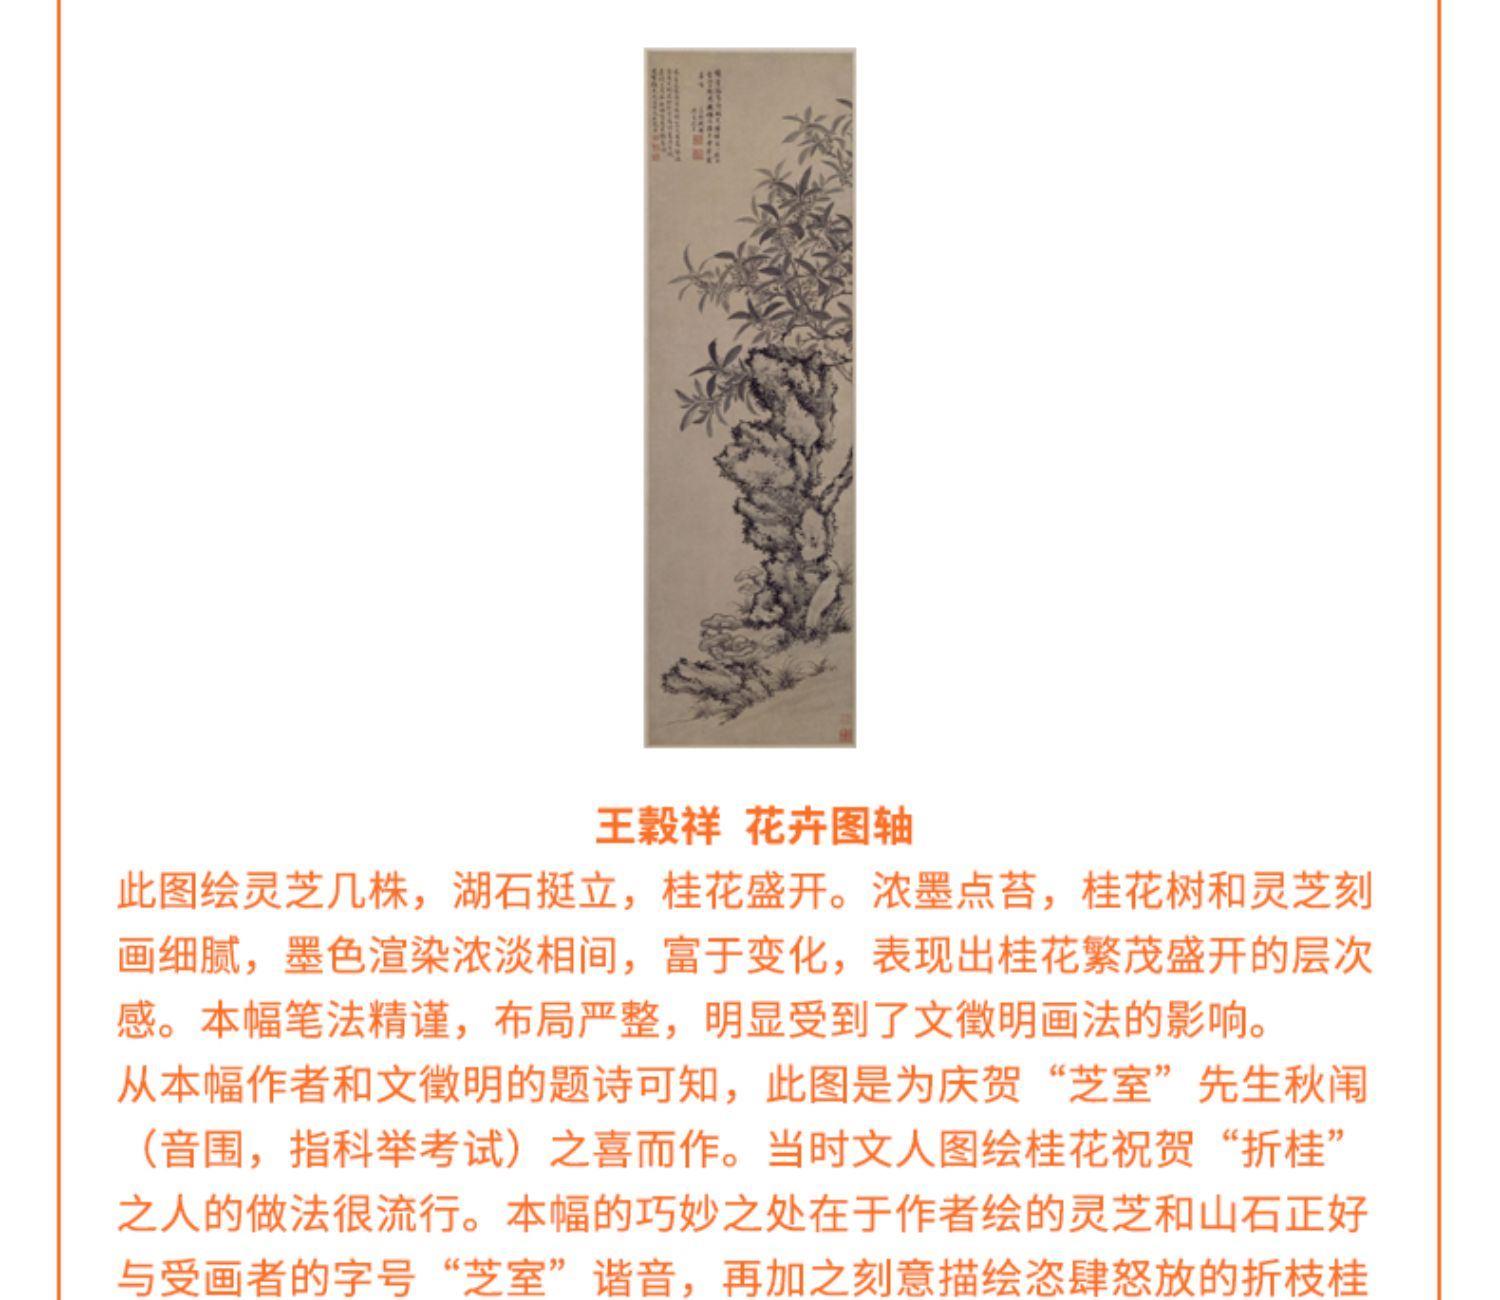 王穀祥 花卉图轴
此图绘灵芝几株，湖石挺立，桂花盛开。浓墨点苔，桂花树和灵芝刻
画细腻，墨色渲染浓淡相间，富于变化，表现出桂花繁茂盛开的层次
感。本幅笔法精谨，布局严整，明显受到了文徵明画法的影响。
从本幅作者和文徵明的题诗可知，此图是为庆贺“芝室”先生秋闱
（音围，指科举考试）之喜而作。当时文人图绘桂花祝贺“折桂”
之人的做法很流行。本幅的巧妙之处在于作者绘的灵芝和山石正好
与受画者的字号“芝室”谐音，再加之刻意描绘恣肆怒放的折枝桂